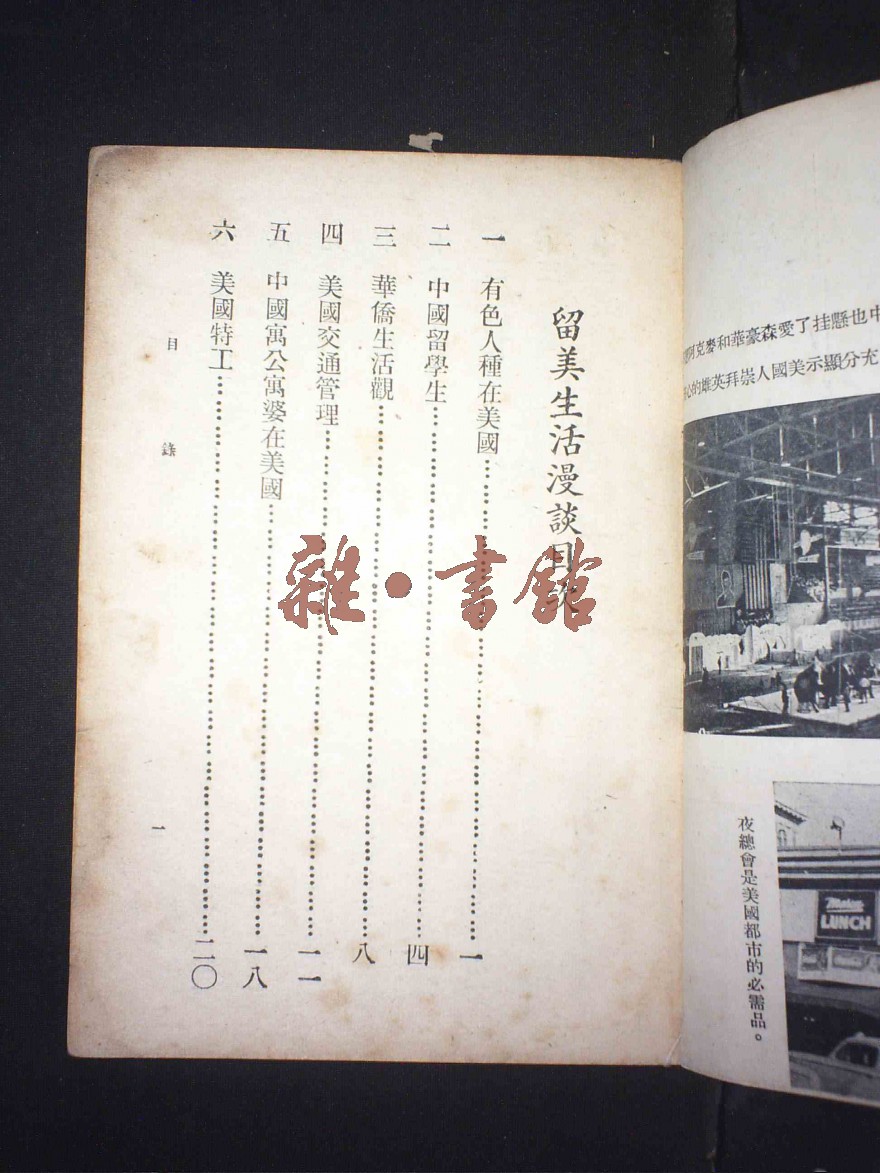 留美生活漫談目次
一 有色人種在美國……一
二 中國留學生……四
三 華僑生活觀……八
四 美國交通管理……一一
五 中國寓公寓婆在美國……一八
六 美國特工……二〇
目錄
一
中也懸挂了愛森豪華和麥克阿
充分顯示美國人崇拜英雄的心
夜總會是美國都市的必需品。
LUNCH
雜·書館